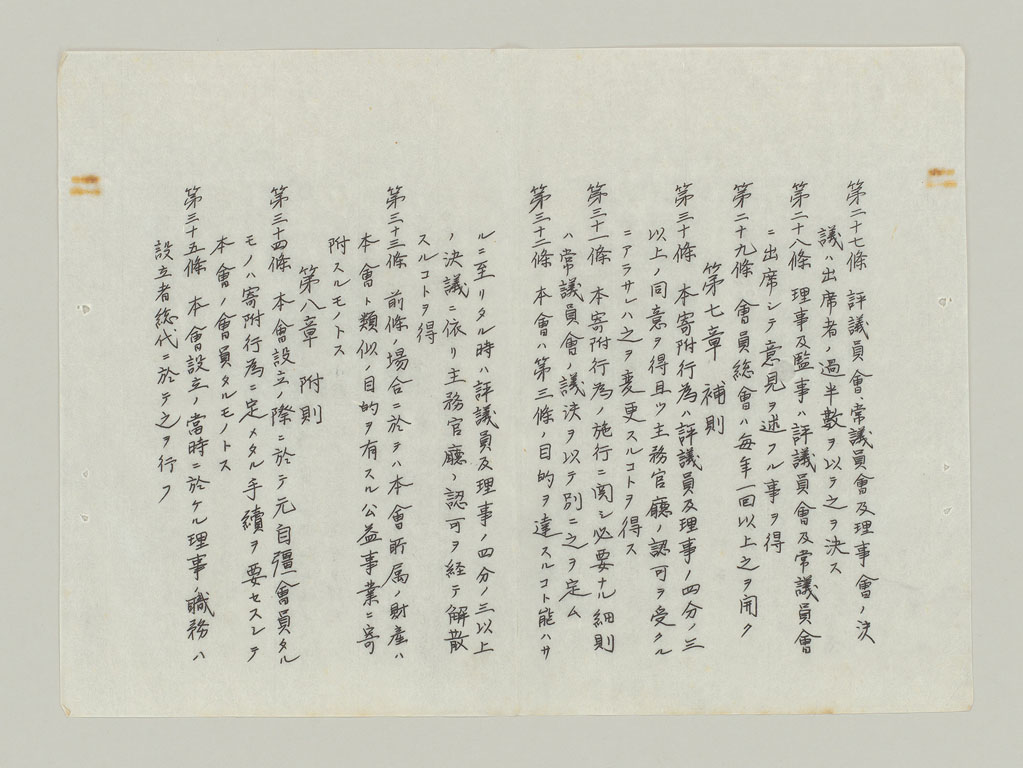 第二十七條 評議員會、常議員會及理事會ノ決
議ハ出席者ノ過半數ヲ以テ之ヲ決ス
第二十八條 理事及監事ハ評議員會及常議員會
ニ出席シテ意見ヲ述フル事ヲ得
第二十九條 會員総會ハ毎年一回以上之ヲ開ク
第七章 補則
第三十條 本寄附行為ハ評議員及理事ノ四分ノ三
以上ノ同意ヲ得且ツ主務官廳ノ認可ヲ受クル
ニアラサレハ之ヲ変更スルコトヲ得ス
第三十一條 本寄附行為ノ施行ニ関シ必要ナル細則
ハ常議員會ノ議決ヲ以テ別ニ之ヲ定ム
第三十二條 本會ハ第三條ノ目的ヲ達スルコト能ハサ
ルニ至リタル時ハ評議員及理事ノ四分ノ三以上
ノ決議ニ依リ主務官廳ノ認可ヲ経テ解散
スルコトヲ得
第三十三條 前條ノ場合ニ於テハ本會所属ノ財産ハ
本會ト類似ノ目的ヲ有スル公益事業ニ寄
附スルモノトス
第八章 附則
第三十四條 本會設立ノ際ニ於テ元自彊會員タル
モノハ寄附行為ニ定メタル手續ヲ要セスシテ
本會ノ會員タルモノトス
第三十五條 本會設立ノ當時ニ於ケル理事ノ職務ハ
設立者総代ニ於テ之ヲ行フ